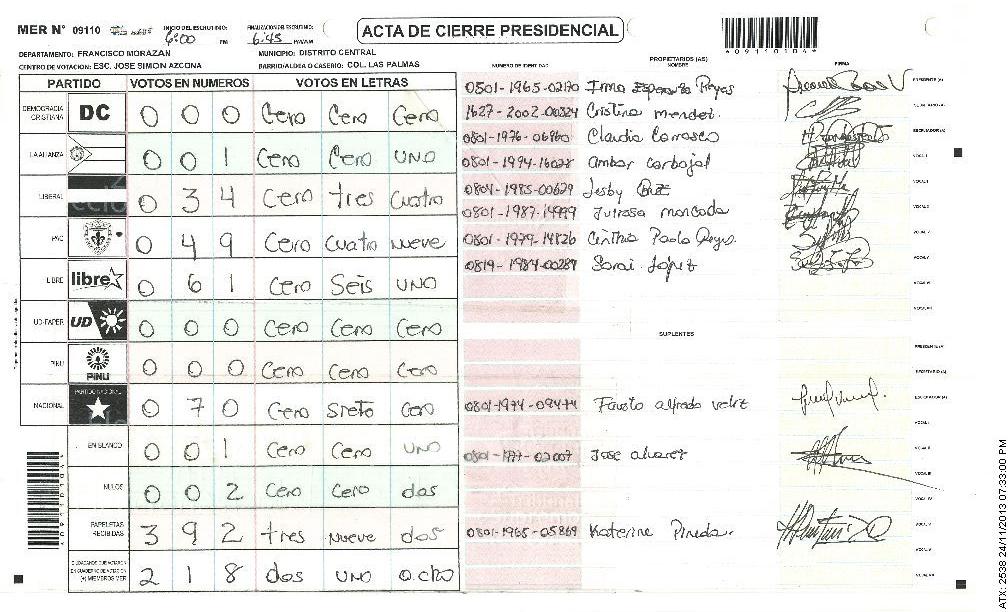 MER N° 09110 INICIO DEL ESCRUTINIO: 6:00 PM FINALIZACION DEL ESCRUTINIO: 6:45 PM/AM ACTA DE CIERRE PRESIDENCIAL
*09110104*
DEPARTAMENTO: FRANCISCO MORAZAN MUNICIPIO: DISTRITO CENTRAL
CENTRO DE VOTACION: ESC. JOSE SIMON AZCONA BARRIO/ALDEA O CASERIO: COL. LAS PALMAS
PARTIDO VOTOS EN NUMEROS VOTOS EN LETRAS
DEMOCRACIA CRISTIANA DC 0 0 0 Cero Cero Cero
LA ALIANZA 0 0 1 Cero Cero UNO
LIBERAL 0 3 4 Cero tres Cuatro
PAC 0 4 9 Cero Cuatro Nueve
LIBRE libre 0 6 1 Cero Seis UNO
UD-FAPER UD 0 0 0 Cero Cero Cero
PINU PINU 0 0 0 Cero Cero Cero
NACIONAL PARTIDO NACIONAL 0 7 0 Cero Sieto Cero
EN BLANCO 0 0 1 Cero Cero UNO
NULOS 0 0 2 Cero Cero dos
PAPELETAS RECIBIDAS 3 9 2 tres Nueve dos
CIUDADANOS QUE VOTARON EN CUADERNO DE VOTACION (+) MIEMBROS MER 2 1 8 dos UNO ocho
PROPIETARIOS (AS)
NUMERO DE IDENTIDAD NOMBRE FIRMA
0801-1965-02170 Irma Esperanza Reyes PRESIDENTE (A)
1627-2002-00324 Cristina mendez SECRETARIO (A)
0801-1976-06960 Claudia Carrasco ESCRUTADOR (A)
0801-1994-16028 Ambar Carbajal VOCAL I
0804-1985-00629 Jesby
0801-1987-14999
0801-1979-14826 Cinthia Paola Reyes.
0819-1984-00289 Sarai López
SUPLENTES
PRESIDENTE (A)
SECRETARIO (A)
0801-1974-09474 Fausto alfredo velez ESCRUTADOR (A)
0801-1977-02007 Jose alvarez
0801-1965-05869 Katerine Pineda.
ATX: 2538 24/11/2013 07:33:00 PM